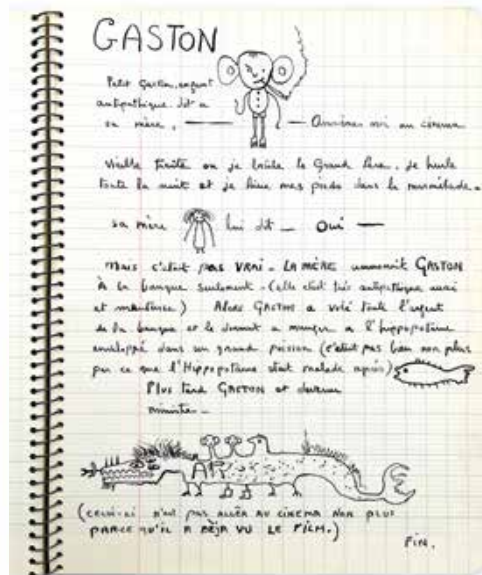 GASTON
Petit Gaston, enfant
antipathique dit a
sa mère, — — Amène moi au cinema
vieille tarite ou je brûle le Grand Père, je hurle
toute la nuit et je lave mes pieds dans la marmelade.
sa mère lui dit — Oui —
Mais c'était pas VRAI - LA MÈRE emmenait GASTON
À la banque seulement - (elle était très antipathique aussi
et menteuse) Alors GASTON a volé toute l'argent
de la banque et le donna a manger a l'hippopotame
enveloppé dans un grand poisson (c'était pas bien non plus
par ce que l'Hippopotame était malade après)
Plus tard GASTON est devenu
ministre -
AR
(celui-ci n'est pas allé AU CINEMA NON PLUS
PARCE QU'IL A DÉJA VU LE FILM.)
FIN.